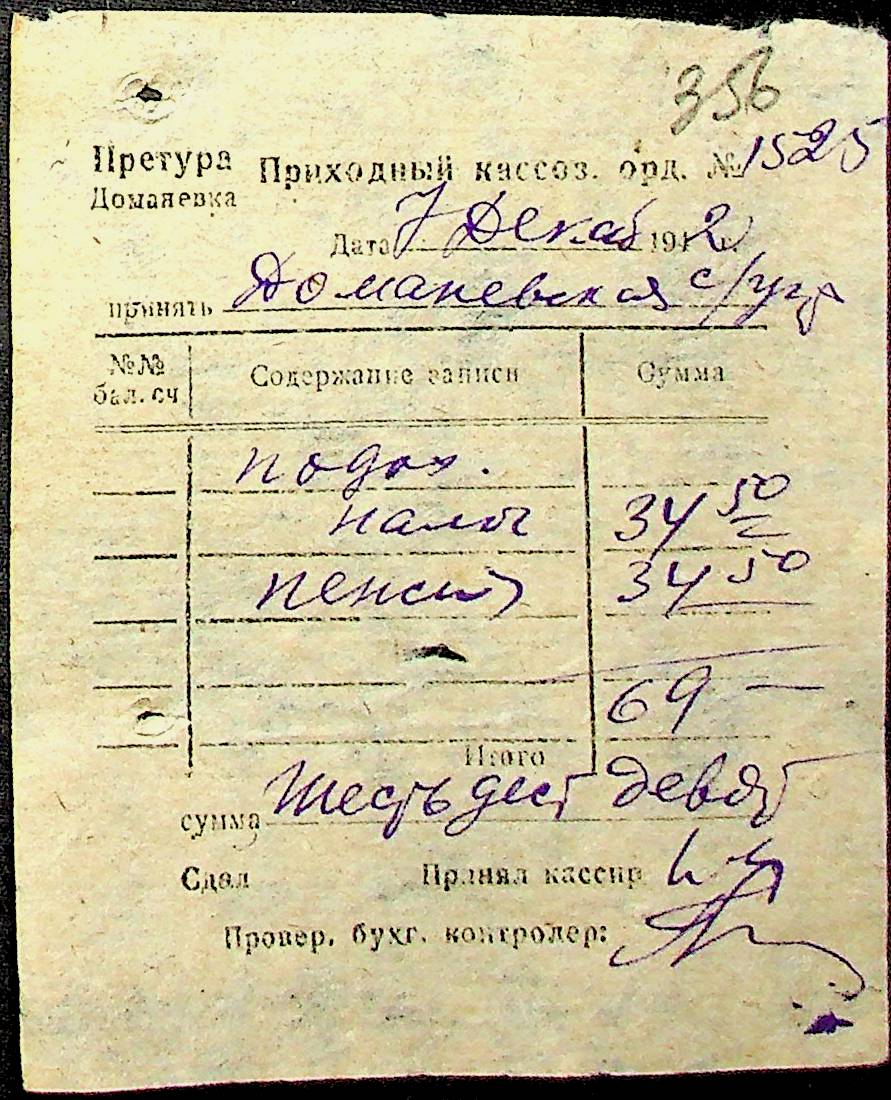 356
Претура Приходный кассов. орд. № 1525
Доманевка
Дата 7 Декаб 1942 г.
принять Доманевская с/упр
№№ бал. сч Содержание записи Сумма
подох.
налог 34 50
пенсия 34 50
69 —
Итого
сумма Шестьдест девять
Сдал Принял кассир
Провер. бухг. контролер: